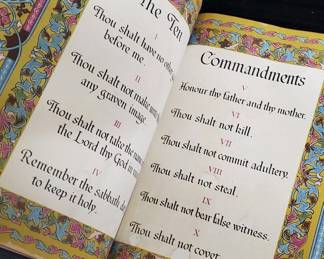 The Ten
I
Thou shalt have no other
before me.
II
Thou shalt not make
any graven image
III
Thou shalt not take the name
the Lord thy God in
IV
Remember the sabbath day
to keep it holy.
Commandments
V
Honour thy father and thy mother.
VI
Thou shalt not kill.
VII
Thou shalt not commit adultery.
VIII
Thou shalt not steal.
IX
Thou shalt not bear false witness.
X
Thou shalt not covet.